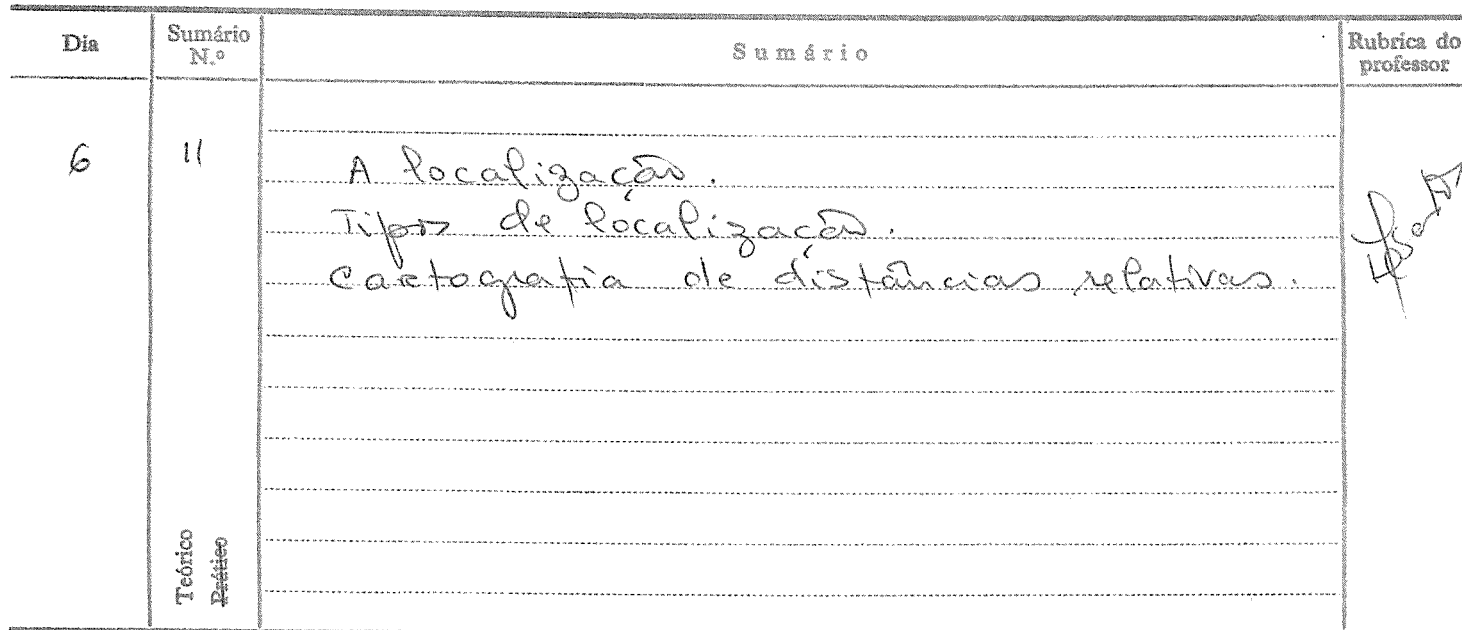 Dia
Sumário
N.º
Sumário
Rubrica do
professor
6
11
A localização.
Tipos de localização.
Cartografia de distâncias relativas.
Teórico
Prático